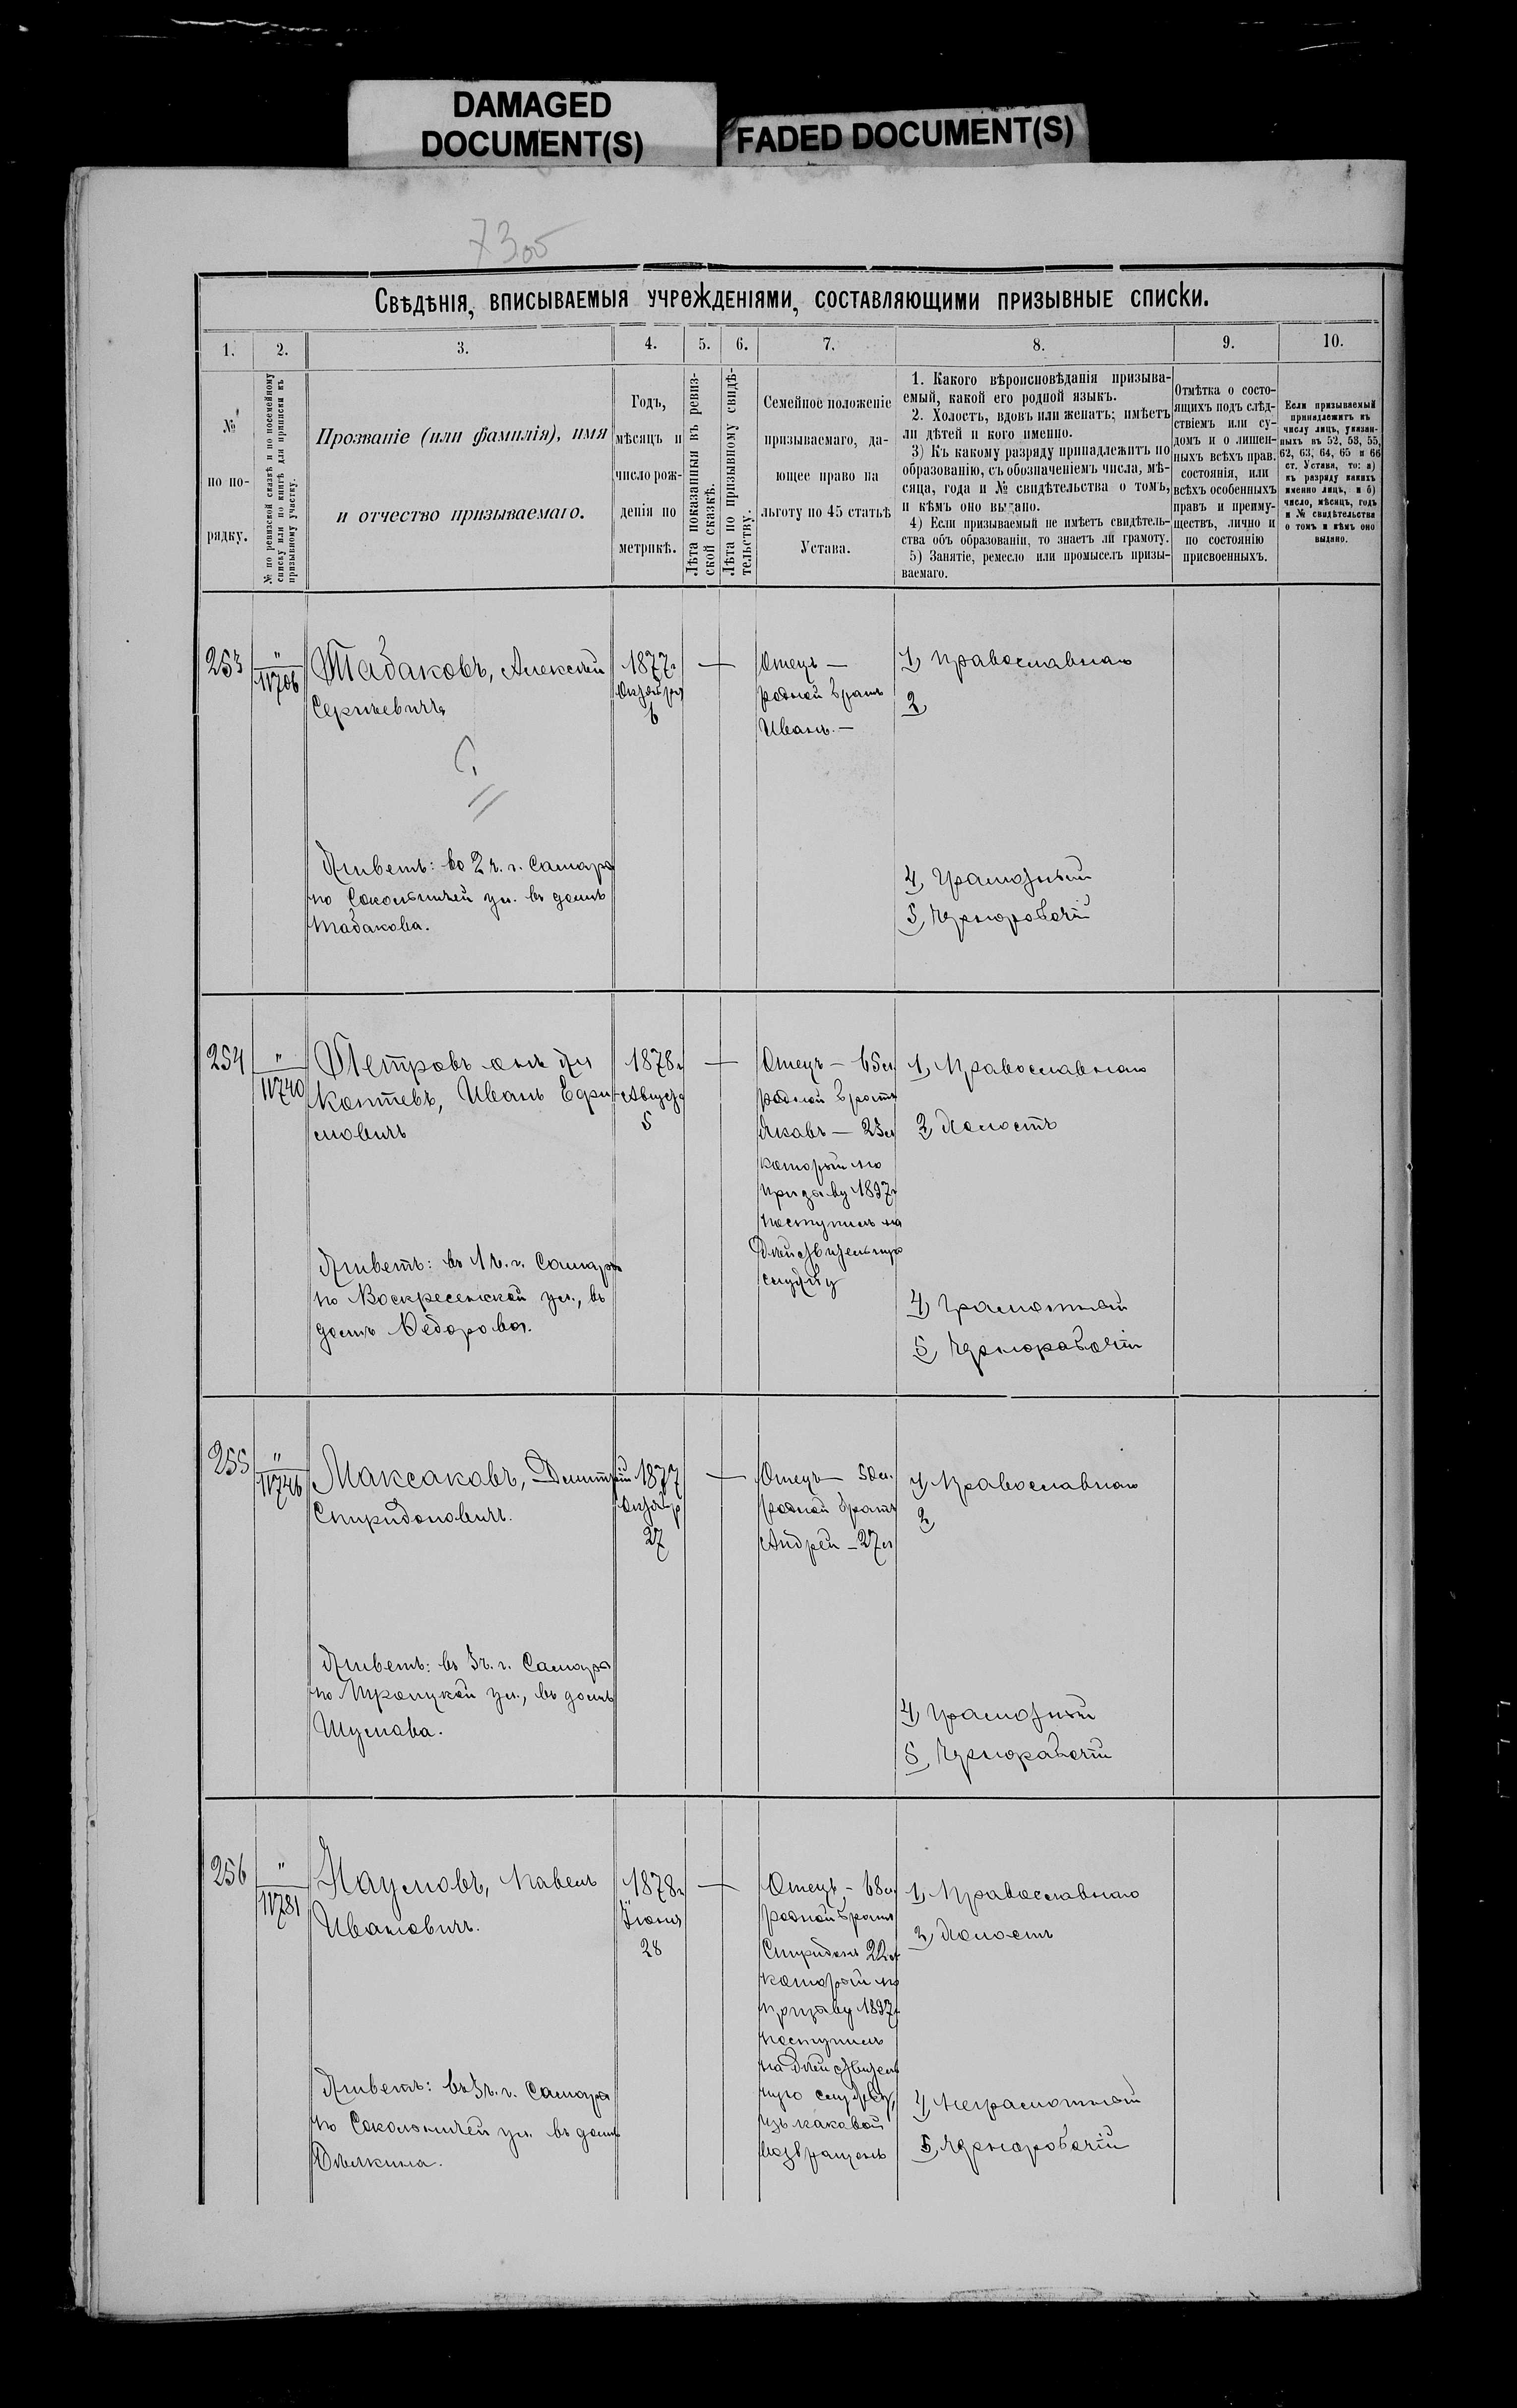 DAMAGED
DOCUMENT(S)
FADED DOCUMENT(S)
7305
Свѣдѣнія, вписываемыя учрежденіями, составляющими призывные списки.
1.
2.
3.
4.
5.
6.
7.
8.
9.
10.
№
по по-
рядку.
№ по ревизской сказкѣ и по посемейному
списку или по книгѣ для приписки къ
призывному участку.
Прозваніе (или фамилія), имя
и отчество призываемаго.
Годъ,
мѣсяцъ и
число рож-
денія по
метрикѣ.
Лѣта показанныя въ ревиз-
ской сказкѣ.
Лѣта по призывному свидѣ-
тельству.
Семейное положеніе
призываемаго, да-
ющее право на
льготу по 45 статьѣ
Устава.
1. Какого вѣроисповѣданія призыва-
емый, какой его родной языкъ.
2. Холостъ, вдовъ или женатъ; имѣетъ
ли дѣтей и кого именно.
3) Къ какому разряду принадлежитъ по
образованію, съ обозначеніемъ числа, мѣ-
сяца, года и № свидѣтельства о томъ,
и кѣмъ оно выдано.
4) Если призываемый не имѣетъ свидѣтель-
ства объ образованіи, то знаетъ ли грамоту.
5) Занятіе, ремесло или промыселъ призы-
ваемаго.
Отмѣтка о состо-
ящихъ подъ слѣд-
ствіемъ или су-
домъ и о лишен-
ныхъ всѣхъ прав.
состоянія, или
всѣхъ особенныхъ
правъ и преиму-
ществъ, лично и
по состоянію
присвоенныхъ.
Если призываемый
принадлежитъ къ
числу лицъ, указан-
ныхъ въ 52, 53, 55,
62, 63, 64, 65 и 66
ст. Устава, то: а)
къ разряду какихъ
именно лицъ, и б)
число, мѣсяцъ, годъ
и № свидѣтельства
о томъ и кѣмъ оно
выдано.
253
"
11706
Табаковъ, Алексѣй
Сергѣевичъ
Живетъ: во 2 ч. г. Самара
по Сокольничей ул. въ домѣ
Табакова.
1877г
Октября
6
—
Отецъ —
родной братъ
Иванъ. —
1, Православнаго
2,
4, Грамотный
5, Чернорабочій
254
"
11740
Петровъ онъ же
Коптевъ, Иванъ Ефи-
мовичъ
Живетъ: въ 1 ч. г. Самары
по Воскресенской ул., въ
домѣ Федорова.
1878г
Августа
5
—
Отецъ — 65 л
родной братъ
Яковъ — 23 л
который по
призыву 1897г
поступилъ на
дѣйствительную
службу
1, Православнаго
2, Холостъ
4, Грамотный
5, Чернорабочій
255
"
11746
Максаковъ, Дмитрій
Спиридоновичъ.
Живетъ: въ 3 ч. г. Самара
по Троицкой ул., въ домѣ
Шумова.
1877
Октябр
27
—
Отецъ — 50 л.
родной братъ
Андрей — 27 л
1, Православнаго
2,
4, Грамотный
5, Чернорабочій
256
"
11781
Наумовъ, Павелъ
Ивановичъ.
Живетъ: въ 3 ч. г. Самара
по Сокольничей ул. въ домѣ
1878г
Іюня
28
—
Отецъ — 68 л.
родной братъ
Спиридонъ 22 л
который по
призыву 1897г
поступилъ
на дѣйствитель
ную службу,
изъ каковой
возвращенъ
1, Православнаго
2, Холостъ
4, Неграмотный
5, Чернорабочій